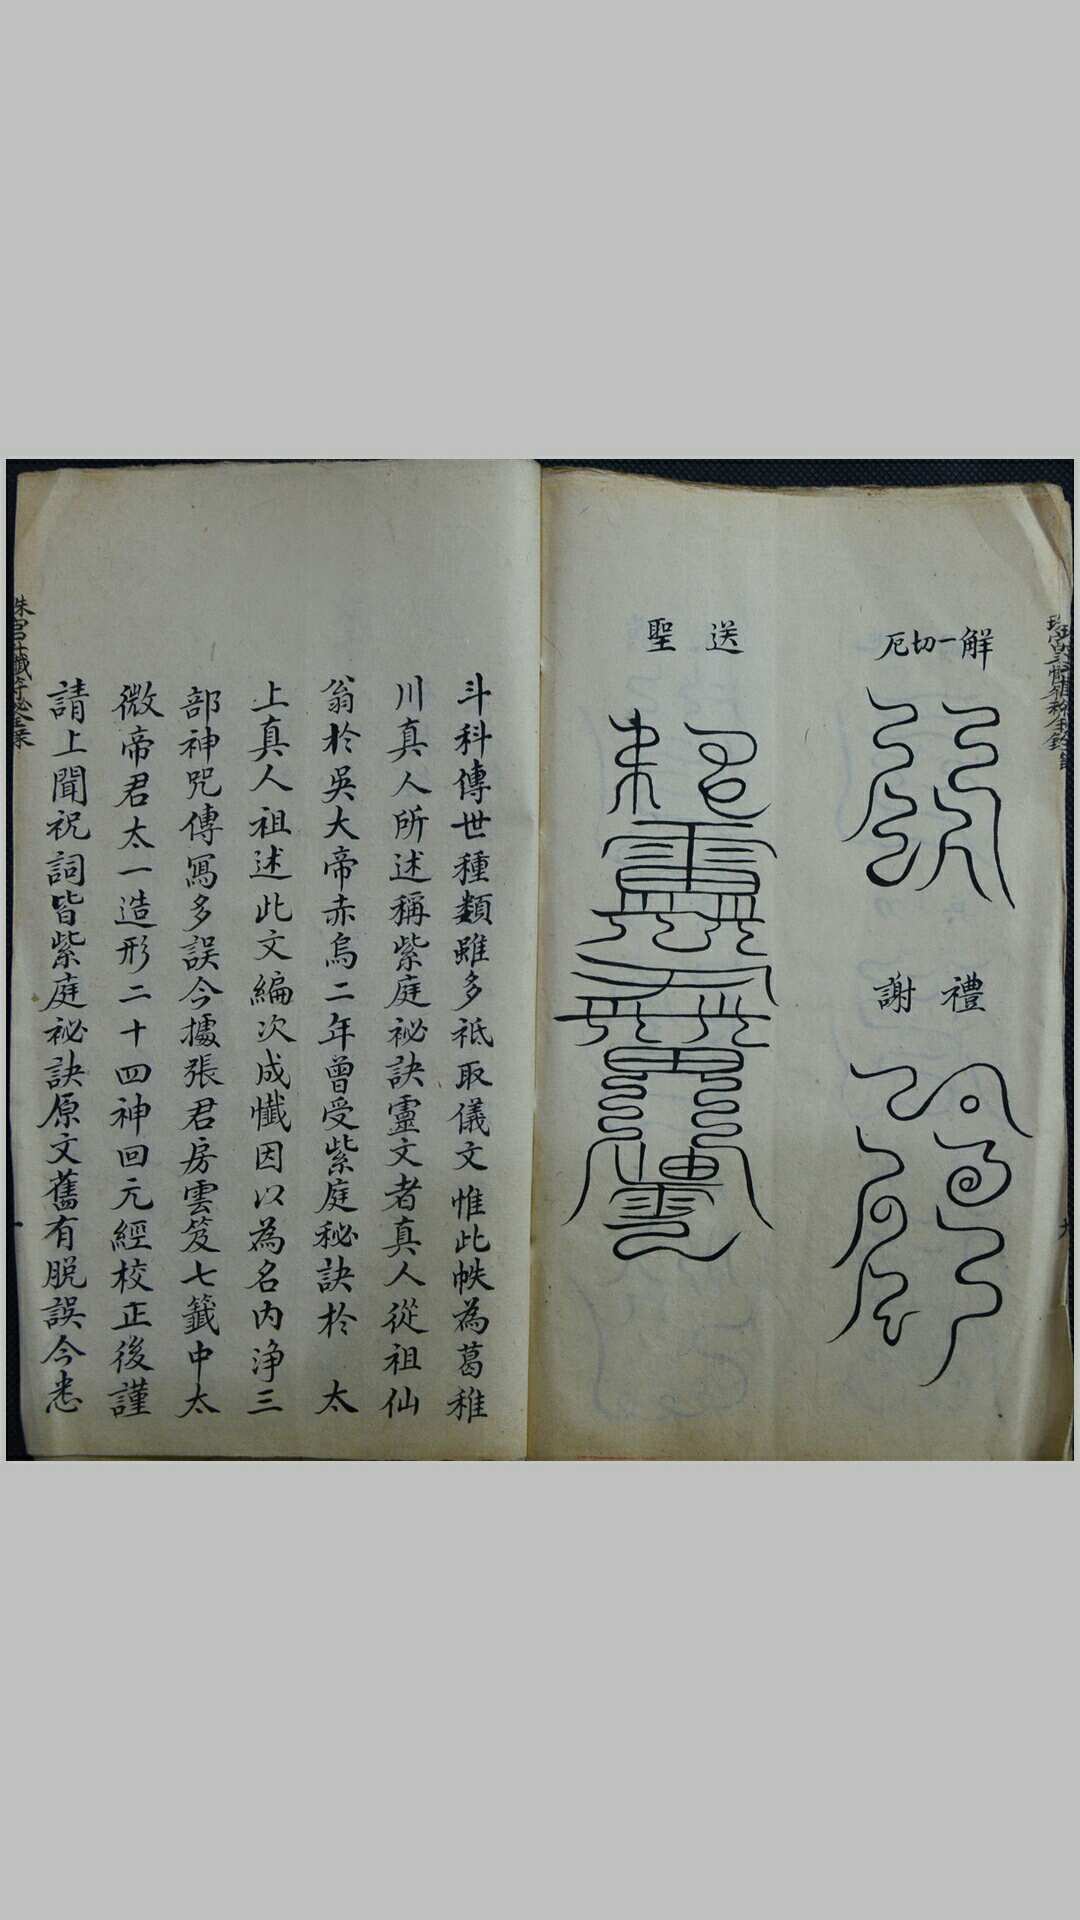 解一切厄
禮謝
送聖
斗科傳世種類雖多祗取儀文惟此帙為葛稚
川真人所述稱紫庭祕訣靈文者真人從祖仙
翁於吳大帝赤烏二年曾受紫庭秘訣於　太
上真人祖述此文編次成懺因以為名內淨三
部神咒傳寫多誤今據張君房雲笈七籤中太
微帝君太一造形二十四神回元經校正後謹
請上聞祝詞皆紫庭祕訣原文舊有脫誤今悉